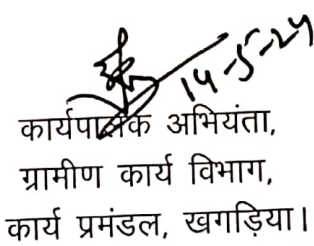 14-5-24
कार्यपालक अभियंता,
ग्रामीण कार्य विभाग,
कार्य प्रमंडल, खगड़िया।